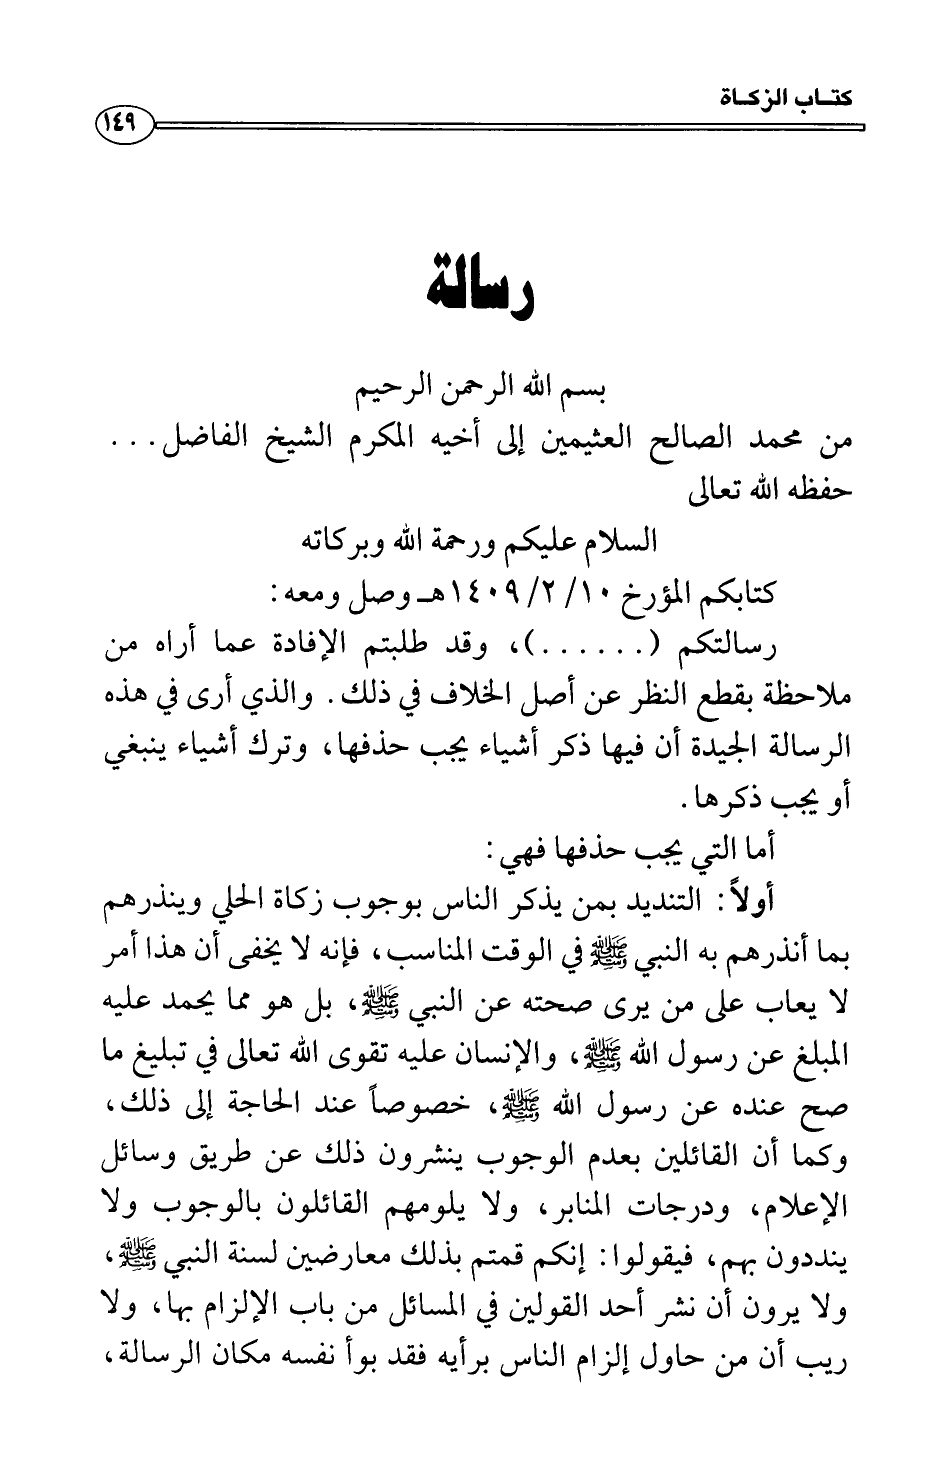 كتاب الزكاة
١٤٩
رسالة
بسم الله الرحمن الرحيم
من محمد الصالح العثيمين إلى أخيه المكرم الشيخ الفاضل...
حفظه الله تعالى
السلام عليكم ورحمة الله وبركاته
كتابكم المؤرخ ١٠/ ٢/ ١٤٠٩هـ وصل ومعه:
رسالتكم (......)، وقد طلبتم الإفادة عما أراه من
ملاحظة بقطع النظر عن أصل الخلاف في ذلك. والذي أرى في هذه
الرسالة الجيدة أن فيها ذكر أشياء يجب حذفها، وترك أشياء ينبغي
أو يجب ذكرها.
أما التي يجب حذفها فهي:
أولاً: التنديد بمن يذكر الناس بوجوب زكاة الحلي وينذرهم
بما أنذرهم به النبي ﷺ في الوقت المناسب، فإنه لا يخفى أن هذا أمر
لا يعاب على من يرى صحته عن النبي ﷺ، بل هو مما يحمد عليه
المبلغ عن رسول الله ﷺ، والإنسان عليه تقوى الله تعالى في تبليغ ما
صح عنده عن رسول الله ﷺ، خصوصاً عند الحاجة إلى ذلك،
وكما أن القائلين بعدم الوجوب ينشرون ذلك عن طريق وسائل
الإعلام، ودرجات المنابر، ولا يلومهم القائلون بالوجوب ولا
ينددون بهم، فيقولوا: إنكم قمتم بذلك معارضين لسنة النبي ﷺ،
ولا يرون أن نشر أحد القولين في المسائل من باب الإلزام بها، ولا
ريب أن من حاول إلزام الناس برأيه فقد بوأ نفسه مكان الرسالة،